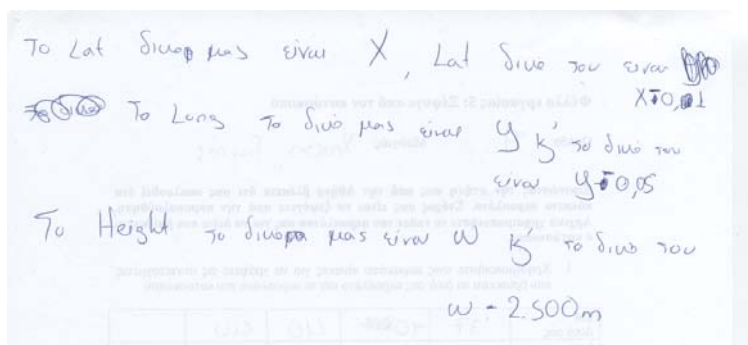 Το Lat δικο μας είναι X, Lat δικό του είναι
X-0,01
Το Long το δικό μας είναι y κ' το δικό του
είναι y-0,05
Το Height το δικο μας είναι ω κ' το δικό του
ω - 2.500m